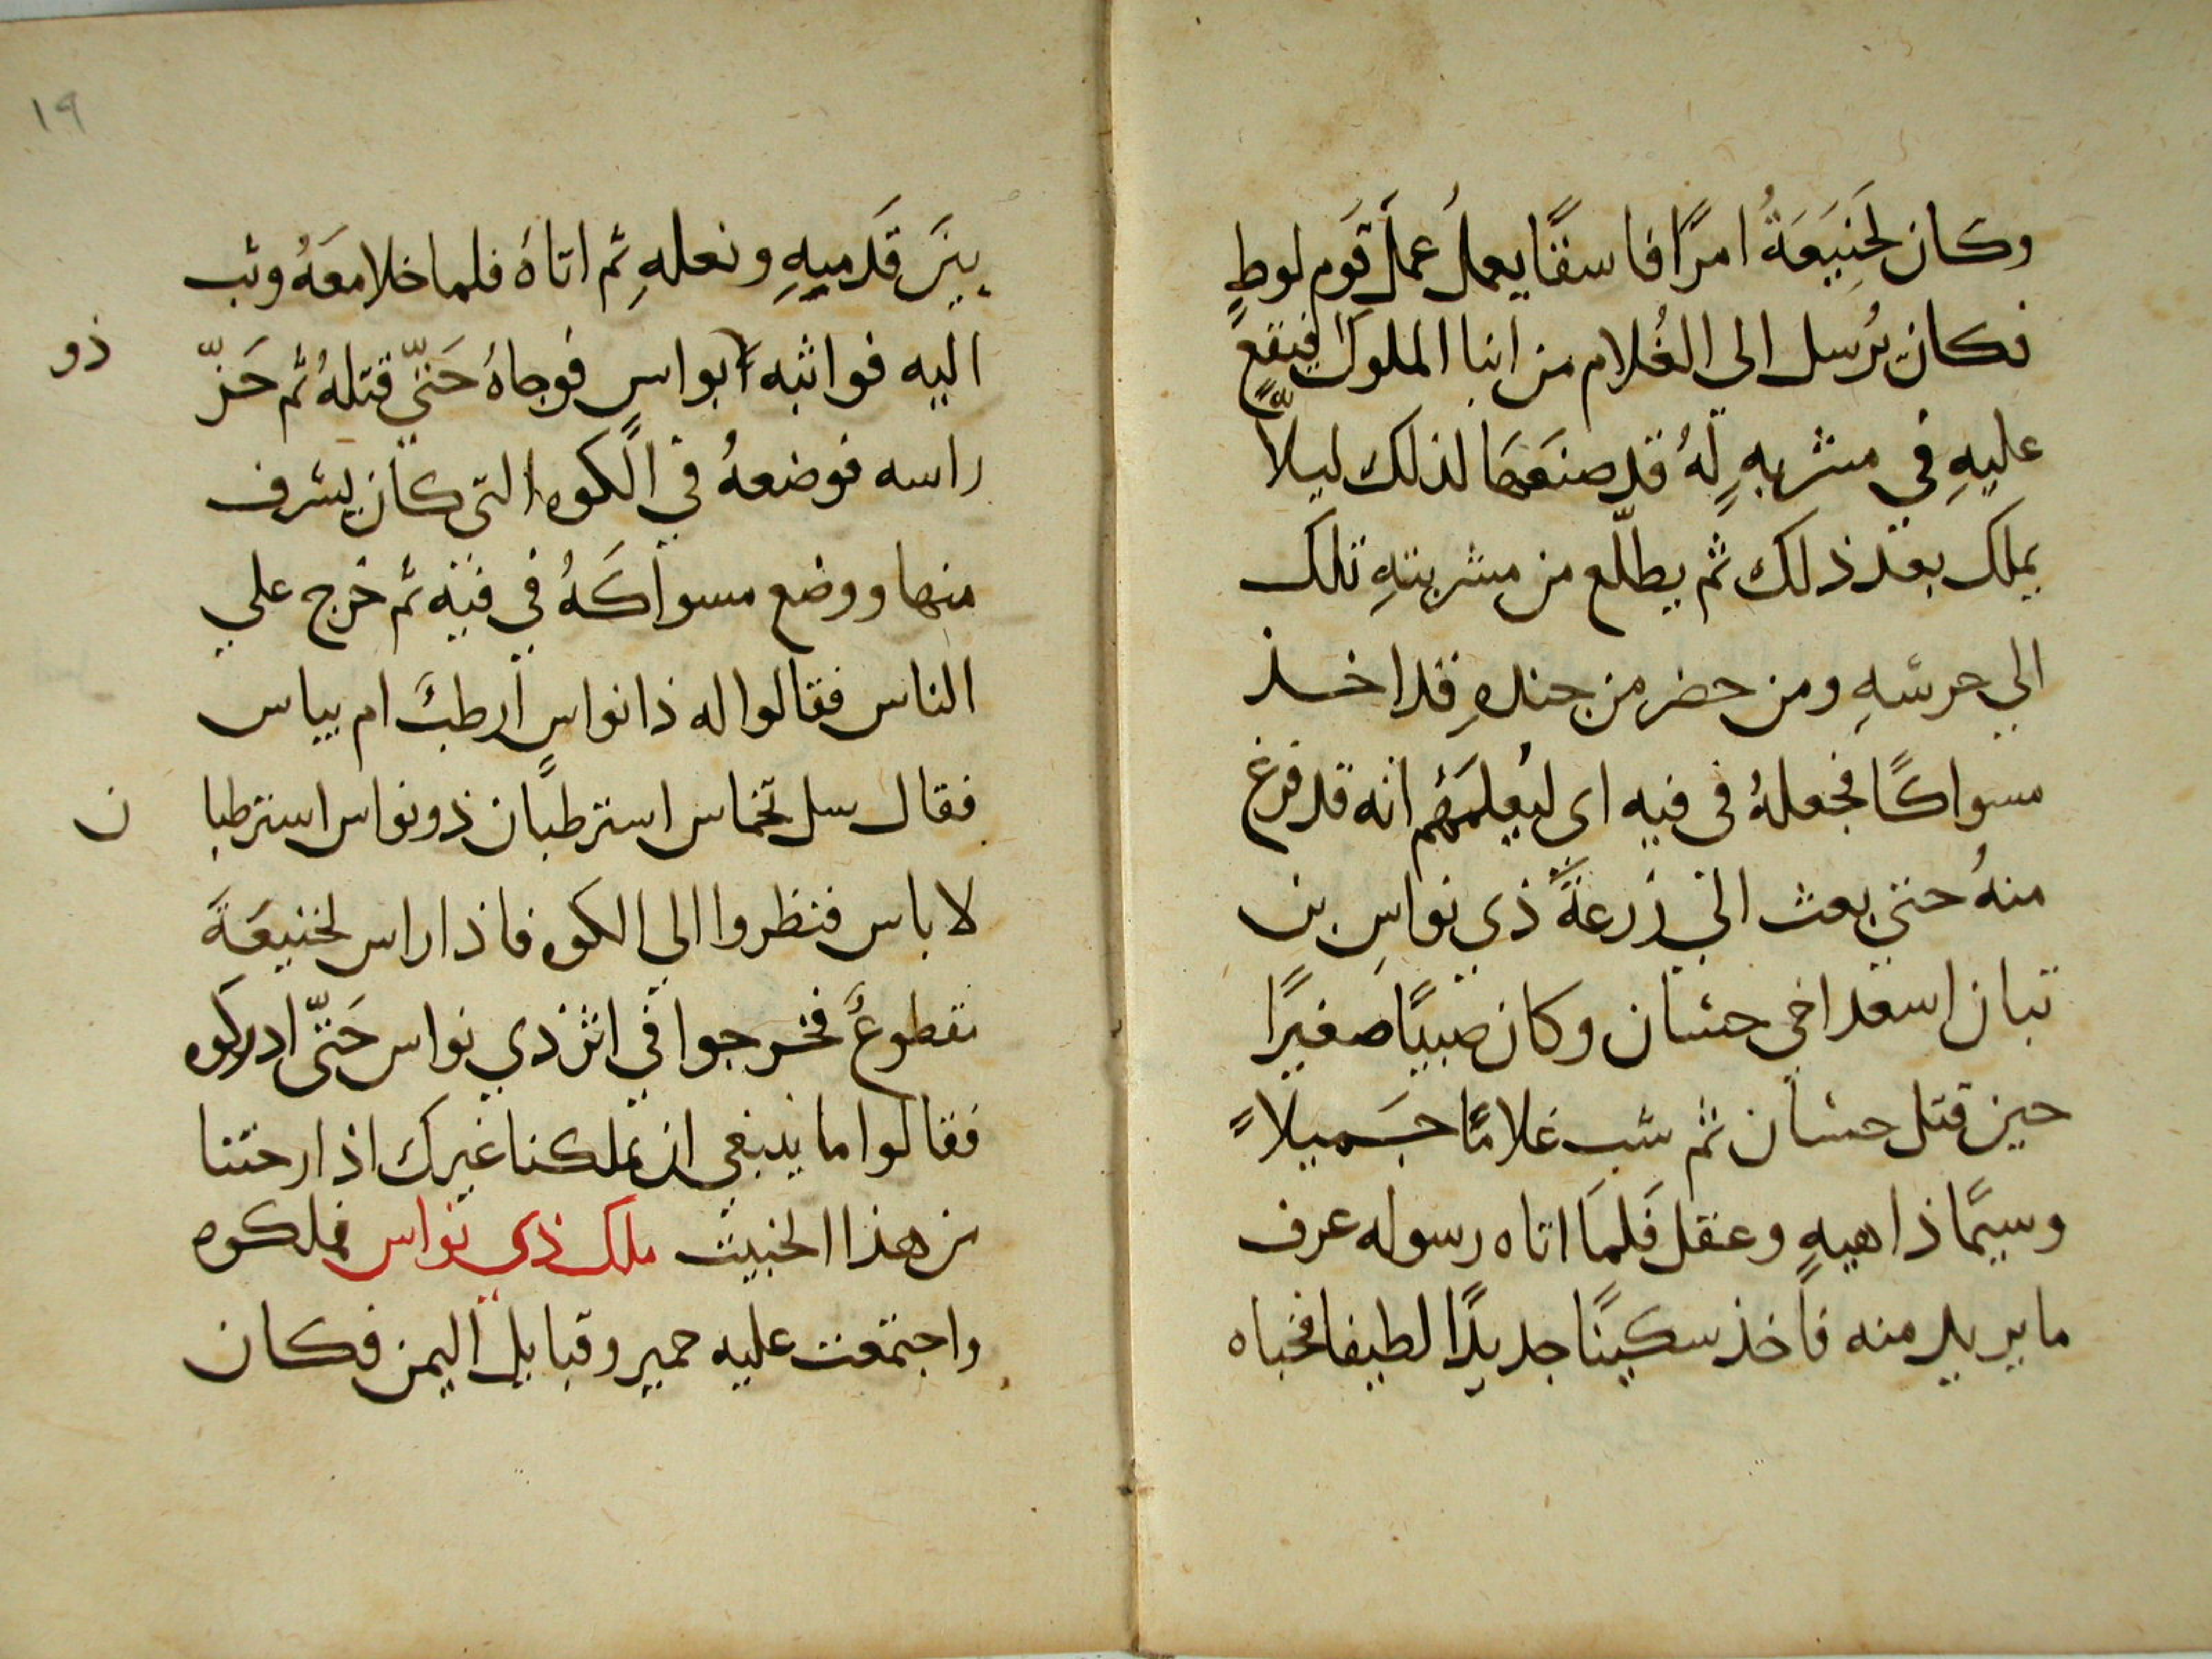 وكان لَخَنِيعَةُ امرًا فاسقًا يعملُ عملَ قَوم لوطٍ
فكان يُرسل الى الغُلام من ابنا الملوك فيقع
عليهِ في مشربهٍ لَهُ قد صنعَهَا لذلك ليلّاً
يملك بعد ذلك ثم يطلّع من مشربتهِ تلك
الي حرسهِ ومن حضر من جندهِ قد اخذ
مسواكًا فجعلهُ في فيه اى ليُعلمَهُم انه قد فرغ
منهُ حتي بعث الي زرعةَ ذي نواسِ بن
تبان اسعد اخي حسان وكان صبيًا صغيرًا
حين قتل حسان ثم شب غلامًا جَميلاً
وسيمًا ذا هيهٍ وعقل فَلمَا اتاه رسوله عرف
ما يريد منه فاخذ سكينًا جديدًا لطيفا فخباه
١٩
بينَ قَدميهِ ونعلهِ ثم اتاهُ فلما خلا معَهُ وثب
اليه فواثبه ابواس فوجاهُ حَتيّ قتلهُ ثم حَزّ
ذو
راسه فوضعهُ في الكوه التى كان يشرف
منها ووضع مسواكَهُ في فيه ثم خرج علي
الناس فقالوا له ذا نواسٍ ارطبَ ام يباس
فقال سل نخماس استرطبًان ذو نواس استرطبا
ن
لا باس فنظروا الي الكوه فاذا راس لخنيعَةَ
مقطوعٌ فخرجوا في اثر ذي نواس حَتّى ادركوه
فقالوا ما ينبغي ان يملكنا غيرك اذ ارحتنا
من هذا الخبيث ملك ذي نواس فملكوه
واجتمعت عليه حمير وقبايل اليمن فكان